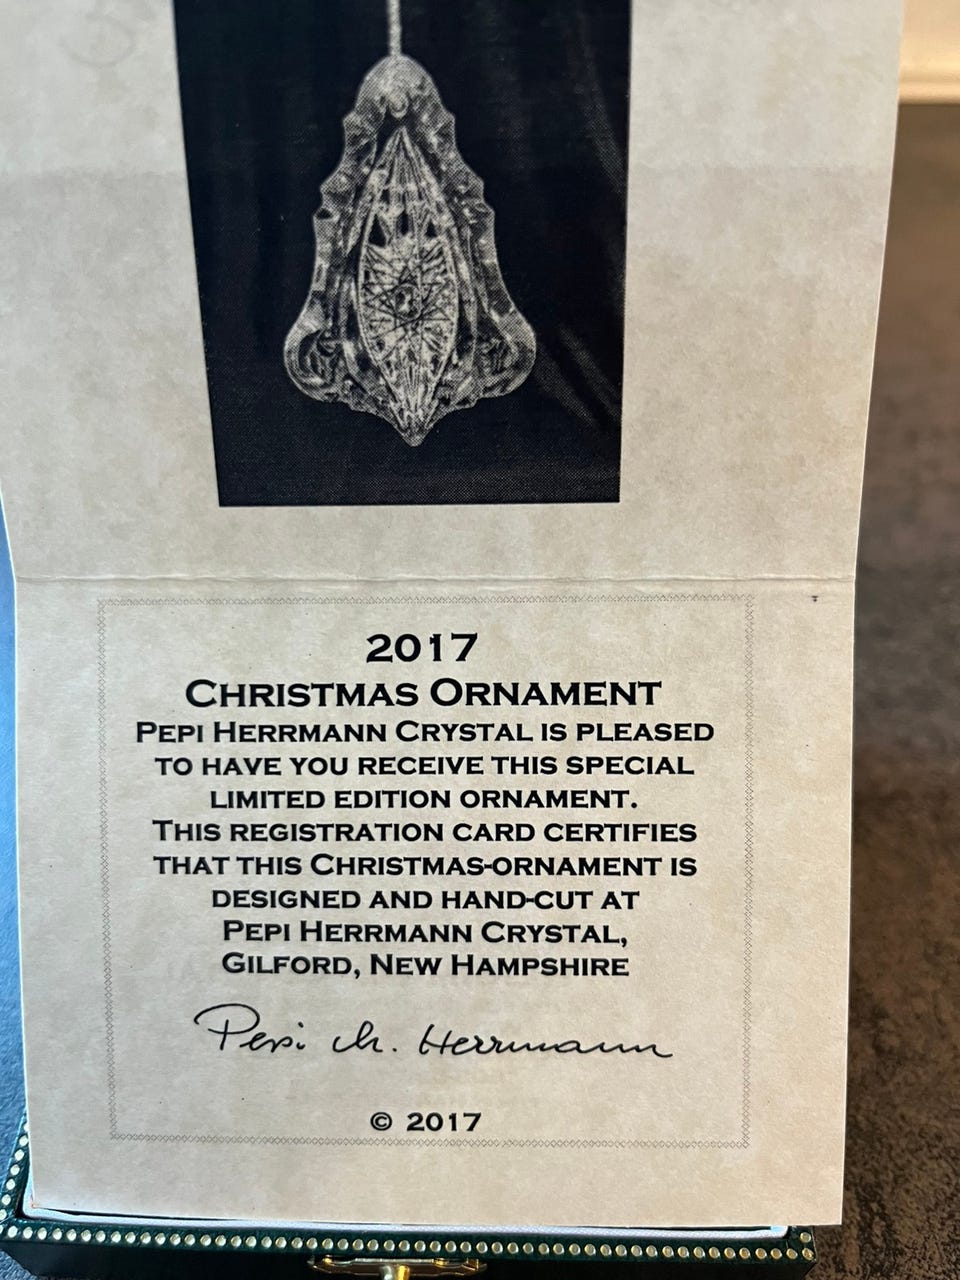 2017
CHRISTMAS ORNAMENT
PEPI HERRMANN CRYSTAL IS PLEASED
TO HAVE YOU RECEIVE THIS SPECIAL
LIMITED EDITION ORNAMENT.
THIS REGISTRATION CARD CERTIFIES
THAT THIS CHRISTMAS-ORNAMENT IS
DESIGNED AND HAND-CUT AT
PEPI HERRMANN CRYSTAL,
GILFORD, NEW HAMPSHIRE
Pepi Ch. Herrmann
© 2017